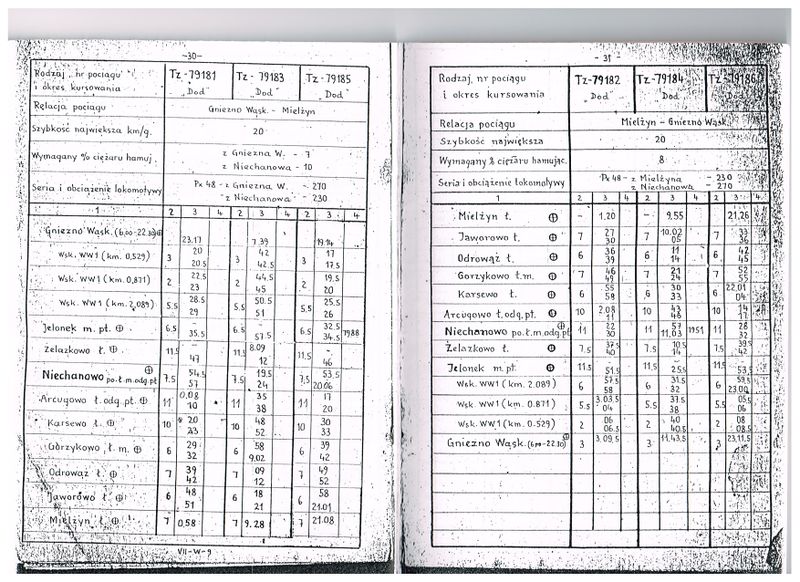 -30-
Rodzaj, nr pociągu i okres kursowania
Tz-79181 "Dod" Tz-79183 "Dod" Tz-79185 "Dod"
Relacja pociągu Gniezno Wąsk. - Mielżyn
Szybkość największa km/g. 20
Wymagany % ciężaru hamuj. z Gniezna W. - 7
z Niechanowa - 10
Seria i obciążenie lokomotywy Px 48 - z Gniezna W. - 270
- z Niechanowa - 230
1 2 3 4 2 3 4 2 3 4
Gniezno Wąsk. (6.00-22.30) ⊕ 23.17 7.39 19.14
Wsk. WW1 (km. 0,529) 3 20 20.5 3 42 42.5 3 17 17.5
Wsk. WW1 (km. 0,871) 2 22.5 23 2 44.5 45 2 19.5 20
Wsk. WW1 (km. 2,089) 5.5 28.5 29 5.5 50.5 51 5.5 25.5 26
Jelonek m. pt. ⊕ 6.5 - 35.5 6.5 - 57.5 6.5 32.5 34.5 1988
Żelazkowo ł. ⊕ 11.5 - 47 11.5 8.09 12 11.5 - 46
Niechanowo po.ł.m.odg.pt. ⊕ 7.5 54.5 57 7.5 19.5 24 7.5 53.5 20.06
Arcugowo ł.odg.pt. ⊕ 11 0.08 10 11 35 38 11 17 20
Karsewo ł. ⊕ 10 20 23 10 48 52 10 30 33
Gorzykowo ł. m. ⊕ 6 29 32 6 58 9.02 6 39 42
Odrowąż ł. ⊕ 7 39 42 7 09 12 7 49 52
Jaworowo ł. ⊕ 6 48 51 6 18 21 6 58 21.01
Mielżyn ł. ⊕ 7 0.58 7 9.28 7 21.08
VII-W-9
-31-
Rodzaj, nr pociągu i okres kursowania
Tz-79182 "Dod" Tz-79184 "Dod" Tz-79186 "Dod"
Relacja pociągu Mielżyn - Gniezno Wąsk.
Szybkość największa 20
Wymagany % ciężaru hamując. 8
Seria i obciążenie lokomotywy Px 48 - z Mielżyna - 230
z Niechanowa - 270
1 2 3 4 2 3 4 2 3 4
Mielżyn ł. ⊕ - 1.20 - 9.55 21.26
Jaworowo ł. ⊕ 7 27 30 7 10.02 05 7 33 36
Odrowąż ł. ⊕ 6 36 39 6 11 14 6 42 45
Gorzykowo ł.m. ⊕ 7 46 49 7 21 24 7 52 55
Karsewo ł. ⊕ 6 55 58 6 30 33 6 22.01 04
Arcugowo ł.odg.pt. ⊕ 10 2.08 11 10 43 46 10 14 17
Niechanowo po.ł.m.odg.pt ⊕ 11 22 30 11 57 11.03 1951 11 28 32
Żelazkowo ł. ⊕ 7.5 37.5 40 7.5 10.5 14 7.5 39.5 42
Jelonek m. pt. ⊕ 11.5 - 51.5 11.5 - 25.5 11.5 - 53.5
Wsk. WW1 (km. 2.089) 6 57.5 58 6 31.5 32 6 59.5 23.00
Wsk. WW1 (km. 0.871) 5.5 3.03.5 04 5.5 37.5 38 5.5 05.5 06
Wsk. WW1 (km. 0.529) 2 06 06.5 2 40 40.5 2 08 08.5
Gniezno Wąsk. (6.00-22.30) ⊕ 3 3.09.5 3 11.43.5 3 23.11.5